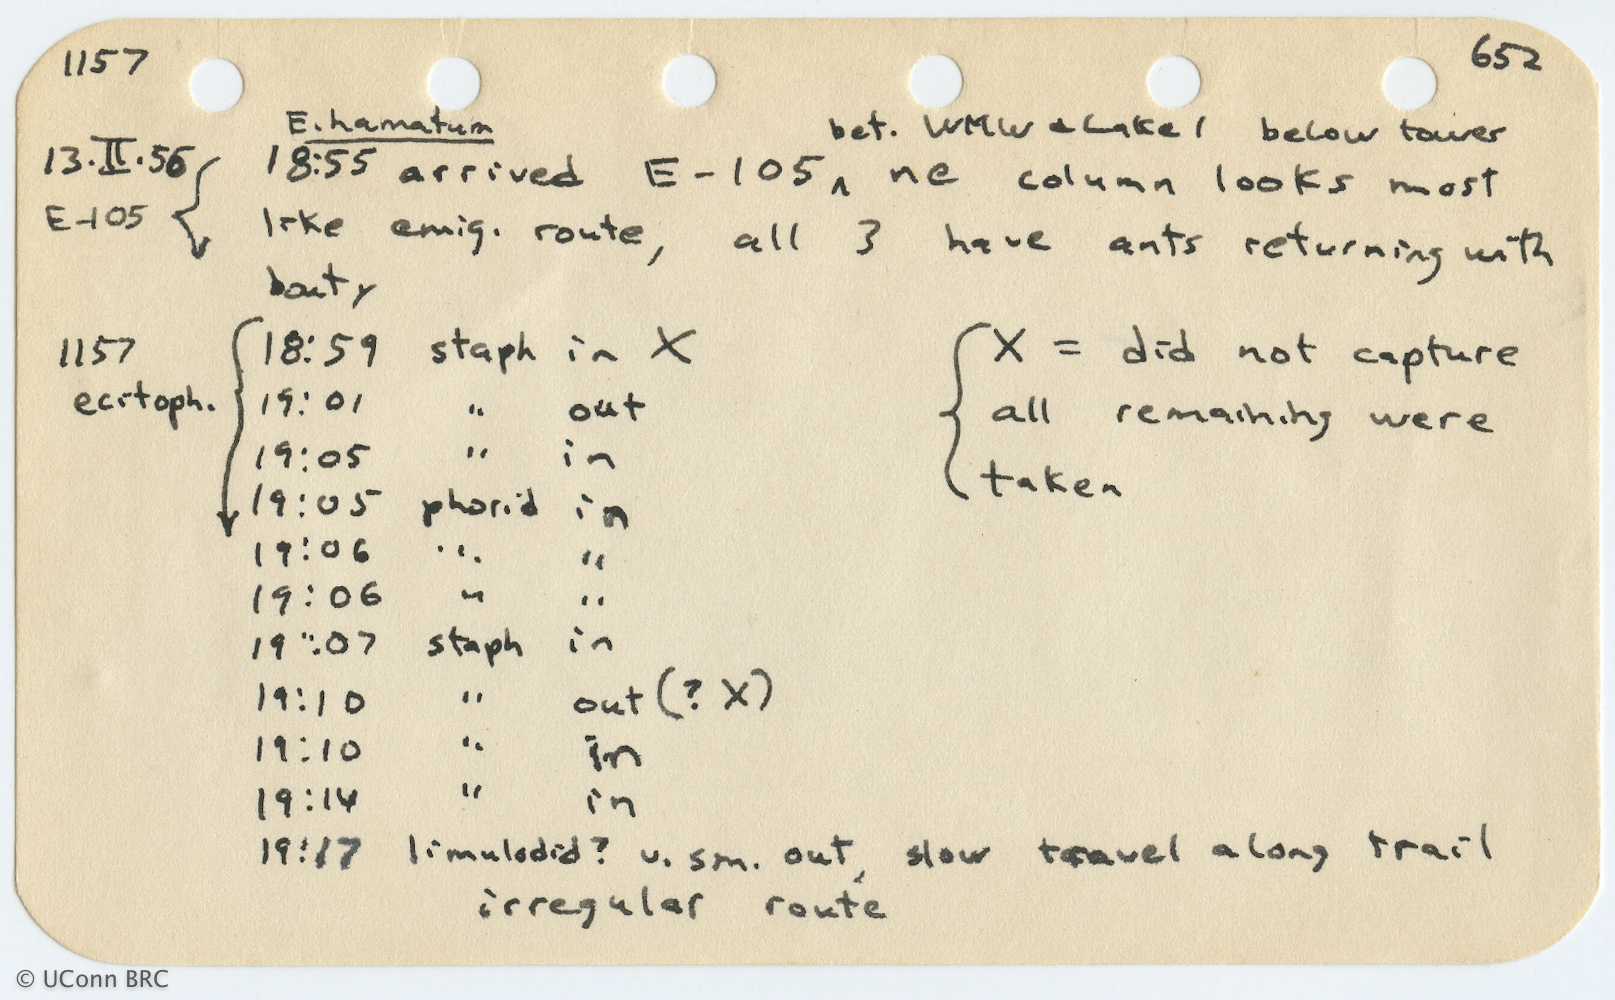 1157 652
E. hamatum bet. WMW & Lake 1 below tower
13.II.56 18:55 arrived E-105 ^ ne column looks most
E-105 like emig. route, all 3 have ants returning with
bouty
1157 18:59 staph in X X = did not capture
ecitoph. 19:01 " out all remaining were
19:05 " in taken
19:05 phorid in
19:06 " "
19:06 " "
19:07 staph in
19:10 " out (? X)
19:10 " in
19:14 " in
19:17 limulodid? v. sm. out, slow travel along trail
irregular route
© UConn BRC